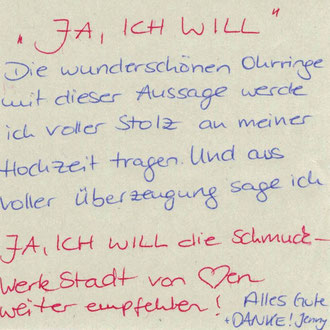 "JA, ICH WILL"
Die wunderschönen Ohrringe
mit dieser Aussage werde
ich voller Stolz an meiner
Hochzeit tragen. Und aus
voller Überzeugung sage ich
JA, ICH WILL die Schmuck-
Werkstadt von ♡en
weiter empfehlen! Alles Gute
+ DANKE! Jenny